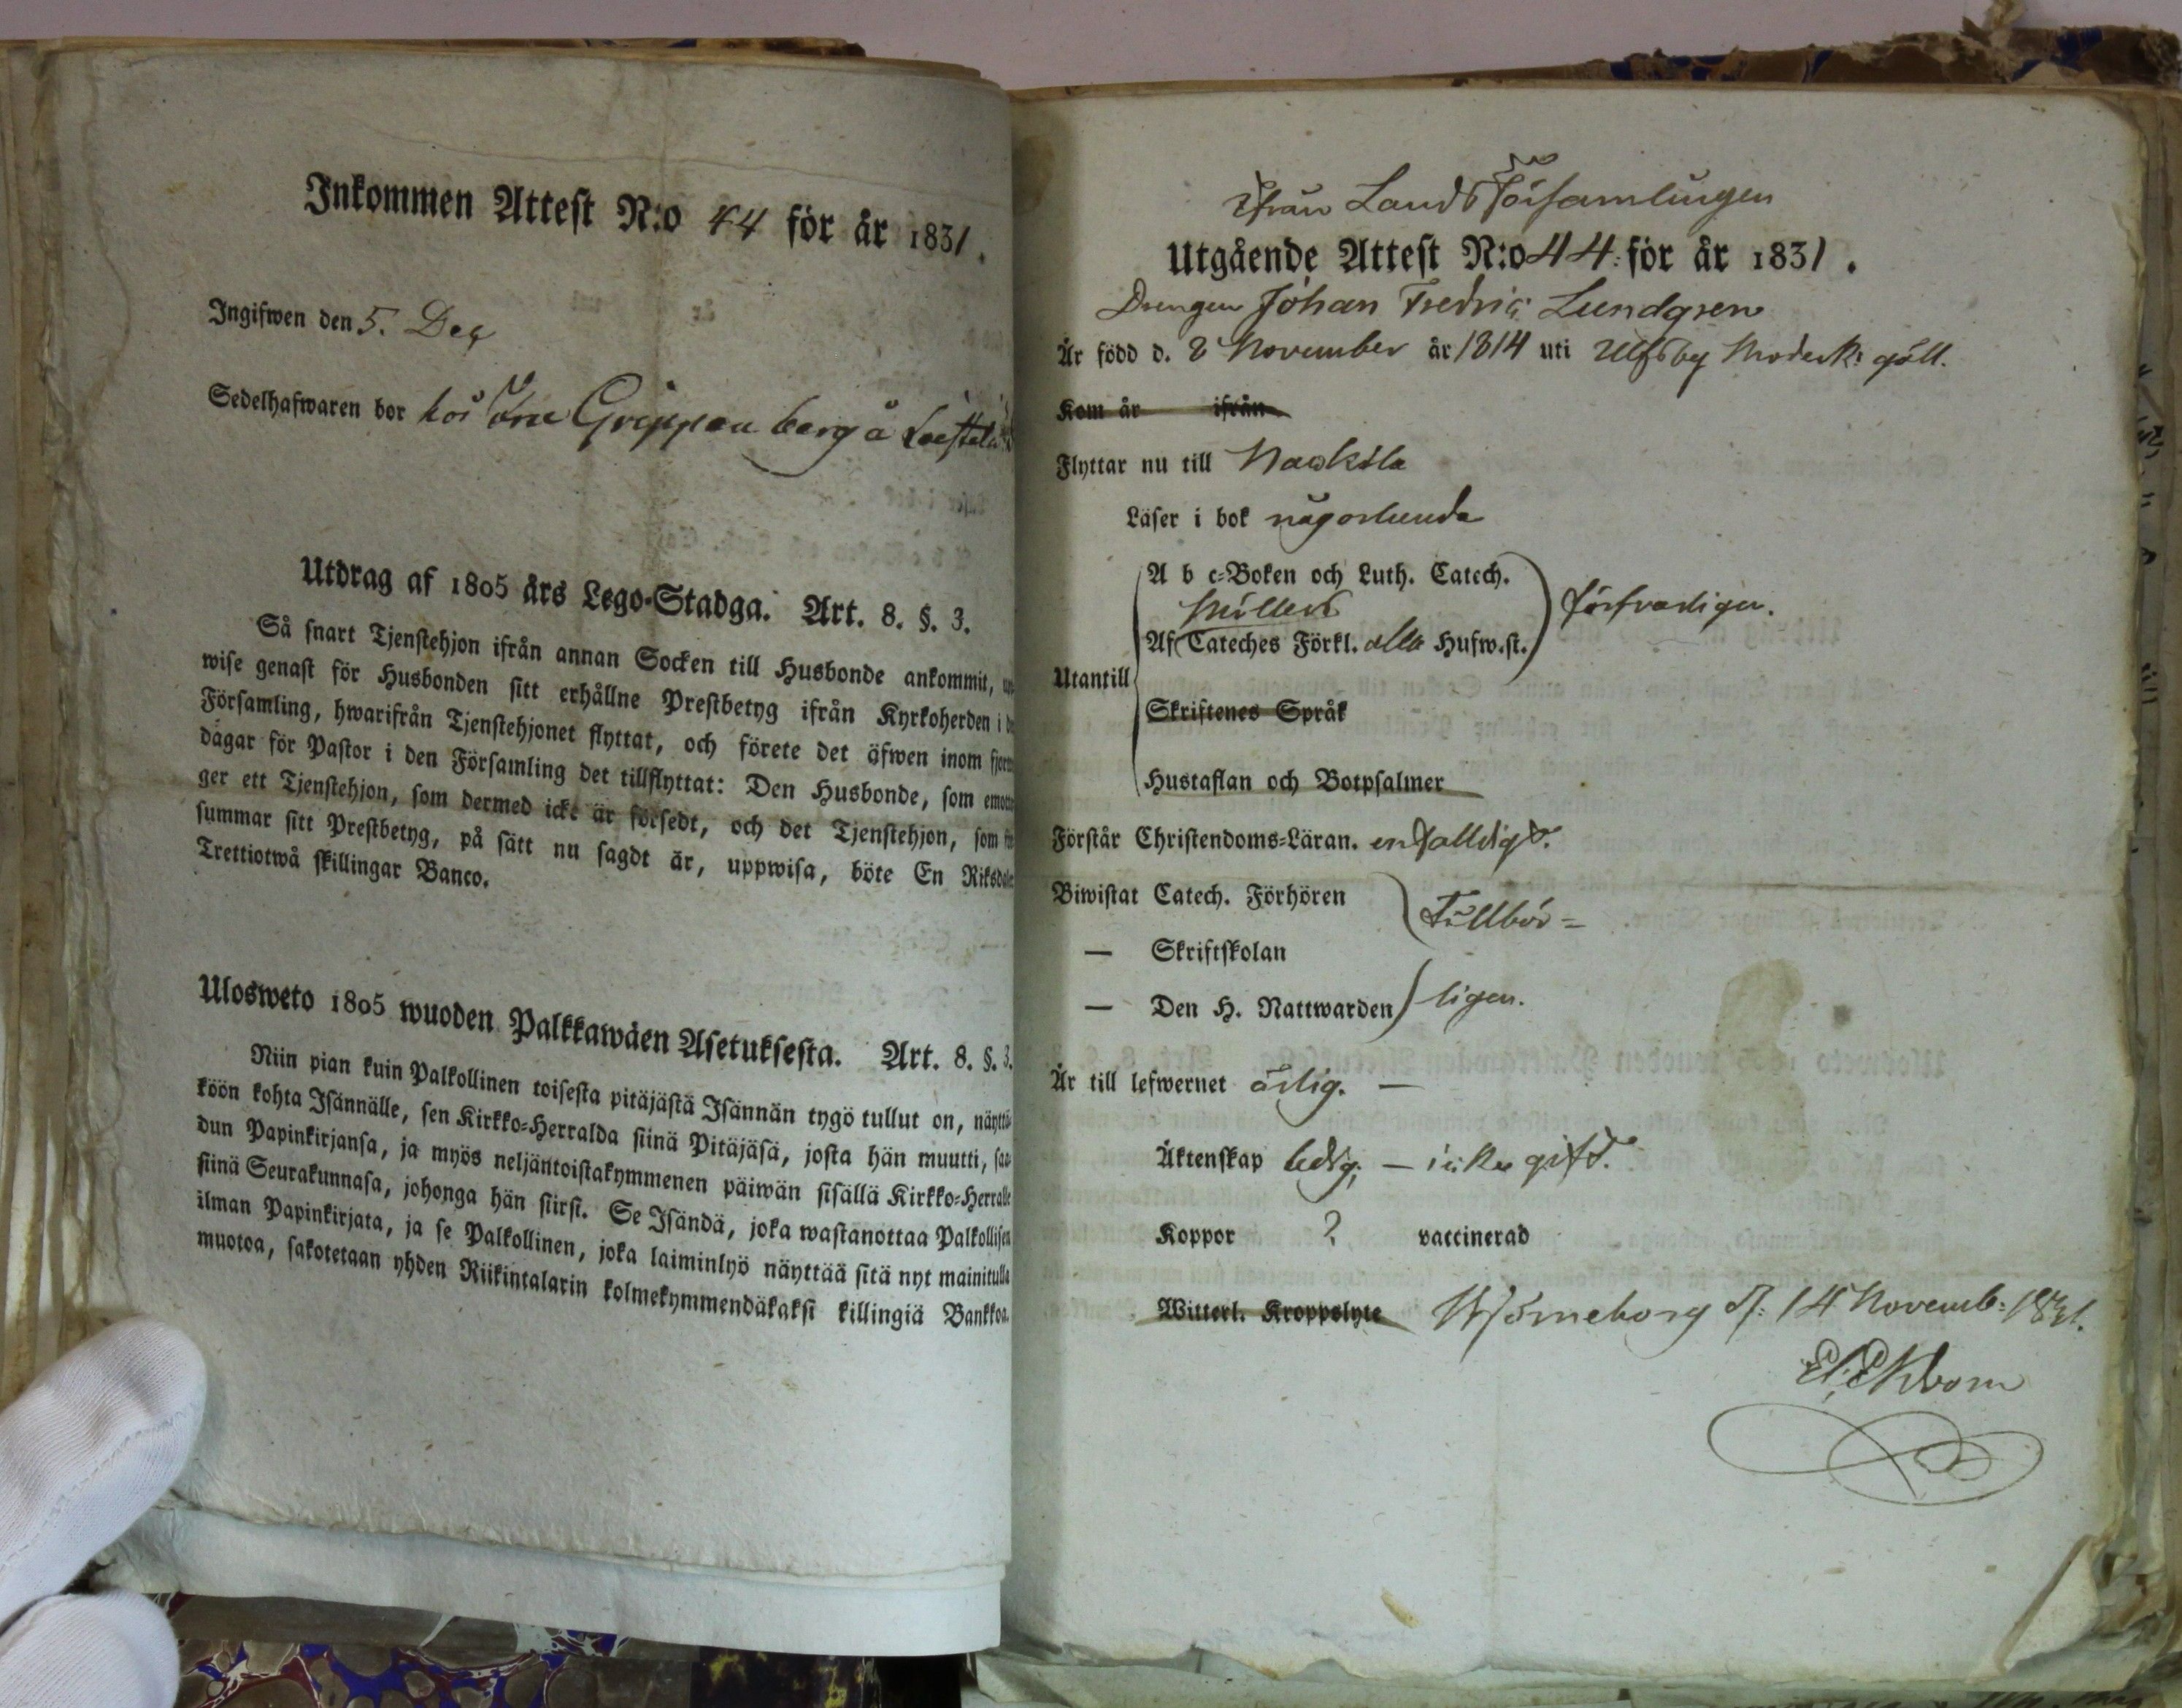 Inkommen Attest N:o 44 för år 1831.
Ingifwen den 5. Dec
Sedelhafwaren bor hos
Utdrag af 1805 års Lego-Stadga. Art. 8. §. 3.
Så snart Tjenstehjon ifrån annan Socken till Husbonde ankommit,
wise genast för Husbonden sitt erhållne Prestbetyg ifrån Kyrkoherden i
Församling, hwarifrån Tjenstehjonet flyttat, och förete det äfwen inom
dagar för Pastor i den Församling det tillflyttat: Den Husbonde, som
ger ett Tjenstehjon, som dermed icke är försedt, och det Tjenstehjon, som
summar sitt Prestbetyg, på sätt nu sagdt är, uppwisa, böte En Riksdaler
Trettiotwå skillingar Banco.
Ulosweto 1805 wuoden Palkkawäen Asetuksesta. Art. 8. §. 3.
Niin pian kuin Palkollinen toisesta pitäjästä Isännän tygö tullut on, näyttä-
köön kohta Isännälle, sen Kirkko-Herralda siinä Pitäjäsä, josta hän muutti, saa-
dun Papinkirjansa, ja myös neljäntoistakymmenen päiwän sisällä Kirkko-Herralle
siinä Seurakunnasa, johonga hän siirsi. Se Isändä, joka wastanottaa Palkollisen
ilman Papinkirjata, ja se Palkollinen, joka laiminlyö näyttää sitä nyt mainitulla
muotoa, sakotetaan yhden Riikintalarin kolmekymmendäkaksi killingiä Bankkoa.
Ifrån Landsförsamlingen
Utgående Attest N:o 44 för år 1831.
Drengen Johan Fredric Lundgren
Är född d. 8 November år 1814 uti Ulfsby Moderk: gäll.
Kom år ifrån
Flyttar nu till Nackila
Läser i bok någorlunda
A b c-Boken och Luth. Catech.
Möllers
Af Cateches Förkl. alla Hufw.st. försvarligen.
Utantill
Skriftenes Språk
Hustaflan och Botpsalmer
Förstår Christendoms-Läran. enfalldigt.
Biwistat Catech. Förhören Tillbör=
— Skriftskolan
— Den H. Nattwarden ligen.
Är till lefwernet ärlig. —
Äktenskap ledig; — icke gift.
Koppor ? vaccinerad
Witterl. Kroppslyte Björneborg d: 14 Novemb: 1831.